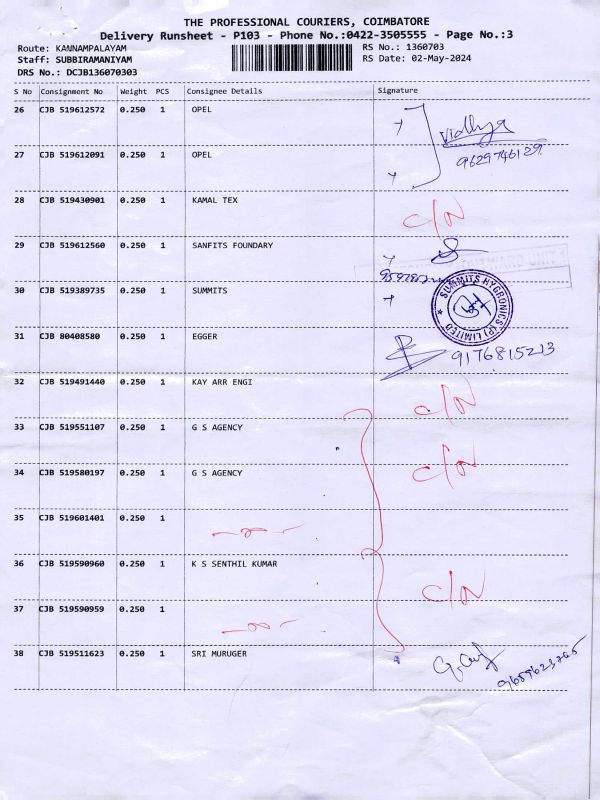 THE PROFESSIONAL COURIERS, COIMBATORE
Delivery Runsheet - P103 - Phone No.:0422-3505555 - Page No.:3
Route: KANNAMPALAYAM
RS No.: 1360703
Staff: SUBBIRAMANIYAM
RS Date: 02-May-2024
DRS No.: DCJB136070303
S No Consignment No Weight PCS Consignee Details Signature
26 CJB 519612572 0.250 1 OPEL
Vidhya
9629746129
27 CJB 519612091 0.250 1 OPEL
28 CJB 519430901 0.250 1 KAMAL TEX
C/N
29 CJB 519612560 0.250 1 SANFITS FOUNDARY
30 CJB 519389735 0.250 1 SUMMITS
SUMMITS HYGRONICS (P) LIMITED
31 CJB 80408580 0.250 1 EGGER
9176815213
32 CJB 519491440 0.250 1 KAY ARR ENGI
C/N
33 CJB 519551107 0.250 1 G S AGENCY
34 CJB 519580197 0.250 1 G S AGENCY
C/N
35 CJB 519601401 0.250 1
36 CJB 519590960 0.250 1 K S SENTHIL KUMAR
C/N
37 CJB 519590959 0.250 1
38 CJB 519511623 0.250 1 SRI MURUGER